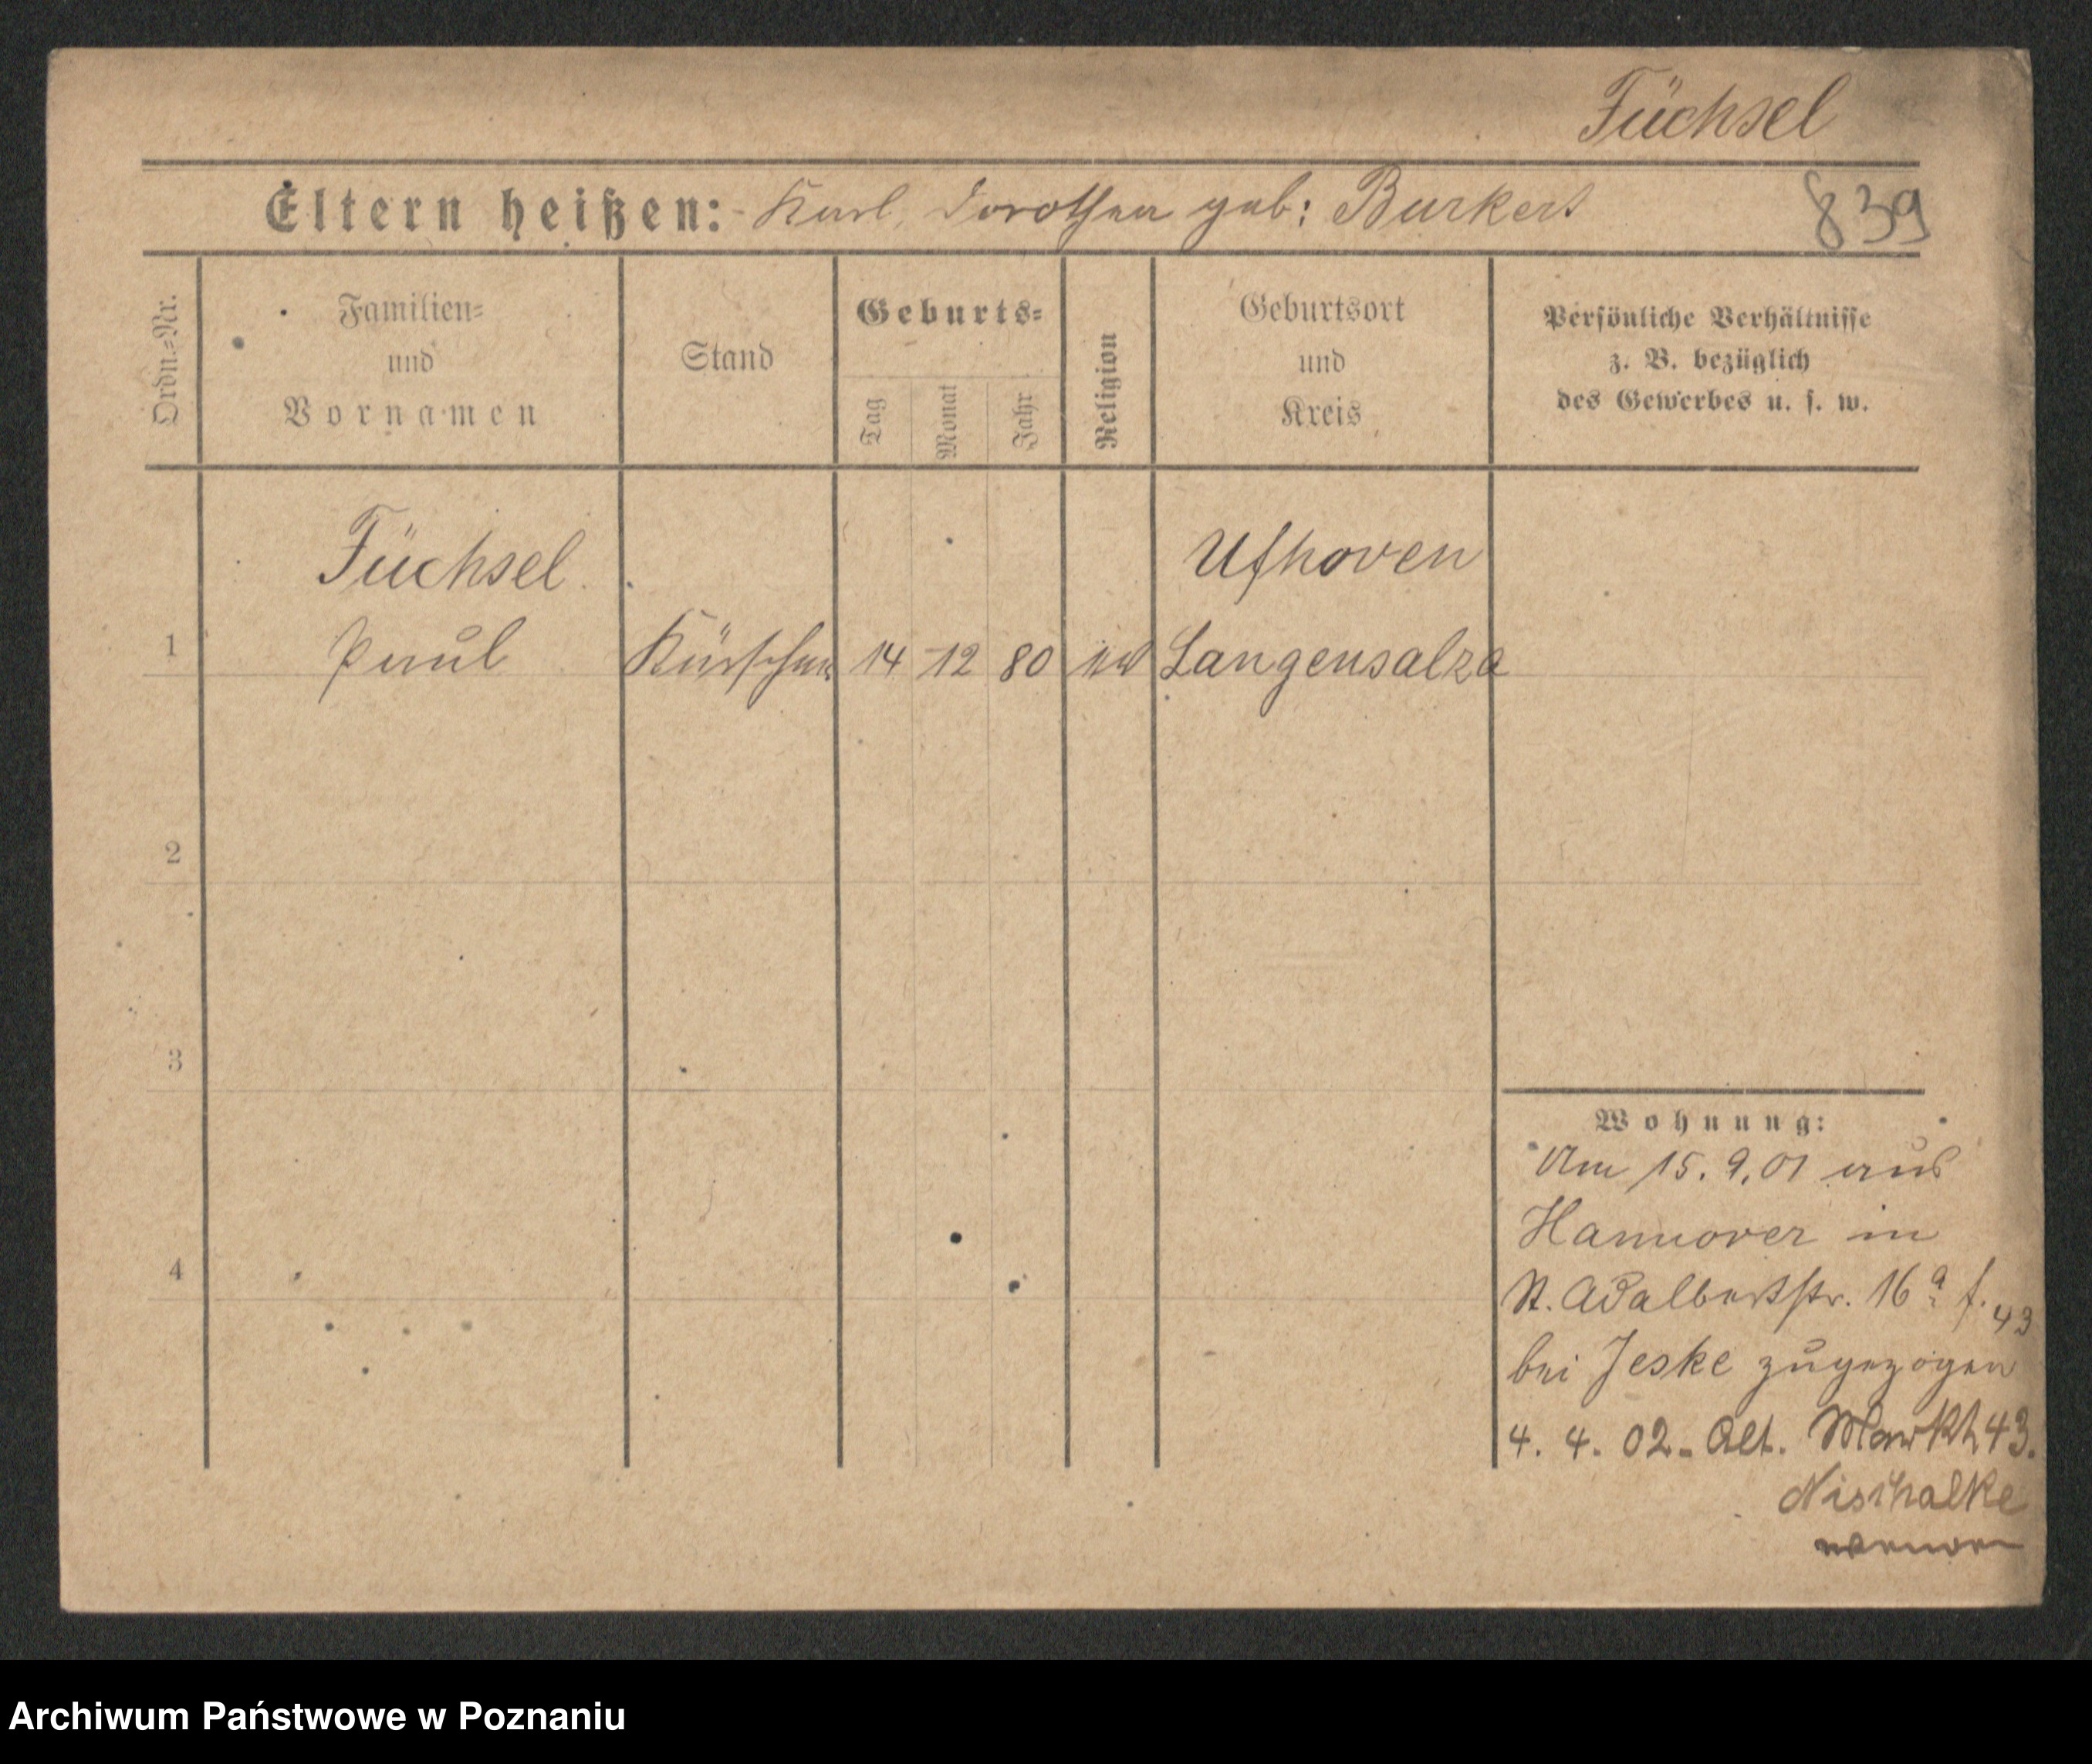 Füchsel
Eltern heißen: Karl, Dorothea geb: Burkert
839
Ordn.=Nr.
Familien=
und
Vornamen
Stand
Geburts=
Tag
Monat
Jahr
Religion
Geburtsort
und
Kreis
Persönliche Verhältnisse
z. B. bezüglich
des Gewerbes u. s. w.
Füchsel
Ufhoven
1
Paul
Kürschner
14
12
80
ev
Langensalza
2
3
4
Wohnung:
Am 15. 9. 01 aus
Hannover in
St. Adalbertstr. 16a
bei Jeske zugezogen
4. 4. 02 - Alt. Markt 43.
Nischalke
wenden
Archiwum Państwowe w Poznaniu